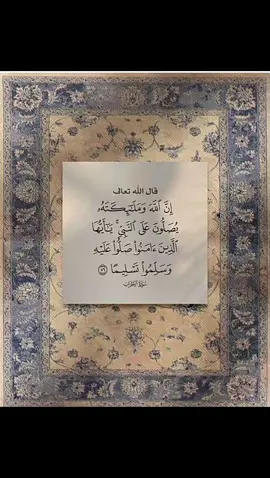 قال الله تعالى
إِنَّ ٱللَّهَ وَمَلَـٰٓئِكَتَهُۥ
يُصَلُّونَ عَلَى ٱلنَّبِىِّ ۚ يَـٰٓأَيُّهَا
ٱلَّذِينَ ءَامَنُوا۟ صَلُّوا۟ عَلَيْهِ
وَسَلِّمُوا۟ تَسْلِيمًا ٥٦
سورة الأحزاب